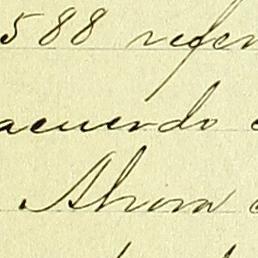 588 refer
acuerdo
Ahora